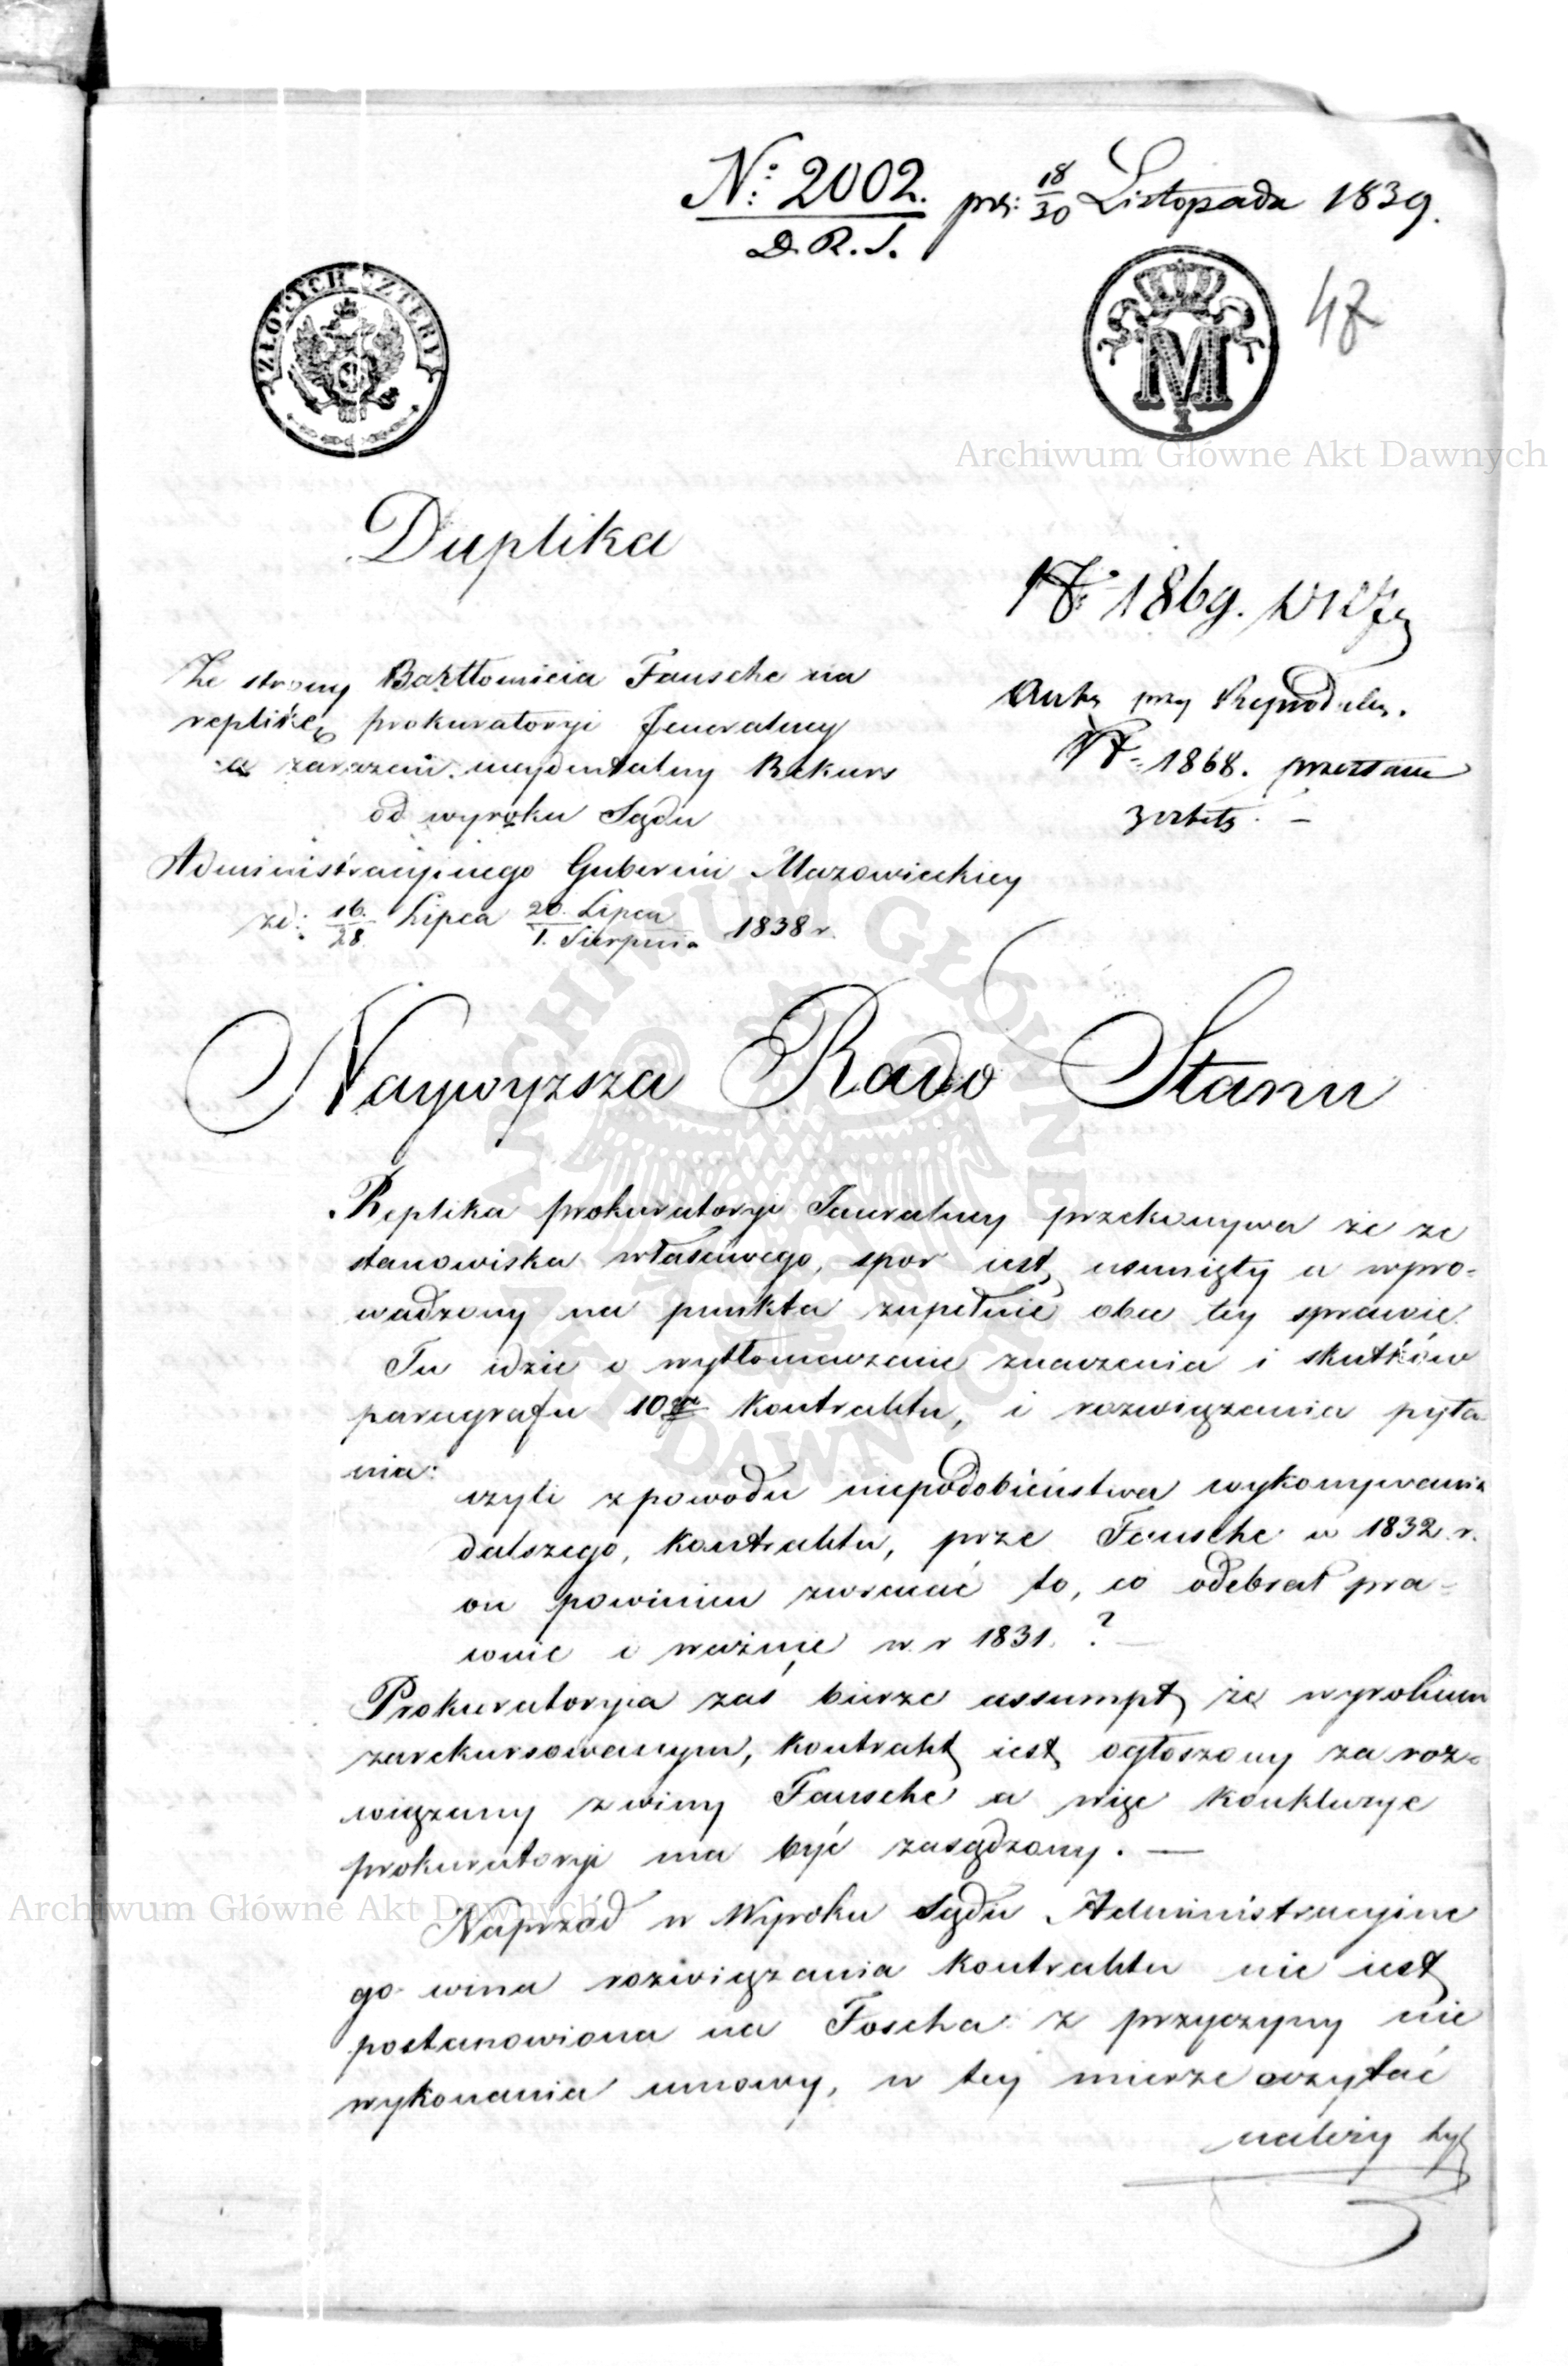 N: 2002. prz: 18/30 Listopada 1839.
D. R. S.
ZŁOTYCH CZTERY
M
I
47
Archiwum Główne Akt Dawnych
Duplika
N: 1869.
Ze strony Bartłomieia Fausche na
replikę prokuratoryi Jeneralney
a zarazem incydentalny Rekurs
od wyroku Sądu
Administracyjnego Gubernii Mazowieckiey
zd: 16/28 Lipca 20. Lipca/1. Sierpnia 1838 r.
Akta przy
N: 1868. przesłane
Naywyzsza Rado Stanu
Replika prokuratoryi Jeneralney przekonywa że ze
stanowiska właściwego, spor iest usunięty a wpro-
wadzony na punkta zupełnie obce tey sprawie.
Tu idzie o wytłomaczenie znaczenia i skutków
paragrafu 10go Kontraktu, i rozwiązania pyta-
nia:
czyli z powodu niepodobieństwa wykonywania
dalszego, Kontraktu, prze Fausche w 1832 r.
on powinien zwracać to, co odebrał pra-
wnie i ważnie w r 1831. ?
Prokuratorya zaś bierze assumpt że wyrokiem
zarekursowanym, Kontrakt iest ogłoszony za roz-
wiązany z winy Fausche a więc Konkluzye
prokuratoryi ma być zasądzony. —
Archiwum Główne Akt Dawnych
Naprzód w Wyroku Sądu Administracyjne
go wina rozwiązania Kontraktu nie iest
postanowiona na Foscha z przyczyny nie
wykonania umowy, w tey mierze czytać
należy